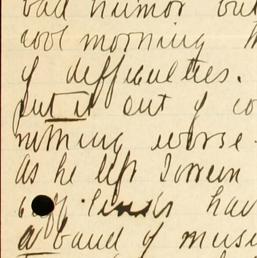 bad humor but
cool morning
of difficulties.
put it out of co
nothing worse.
As he left
hav
a band of musi